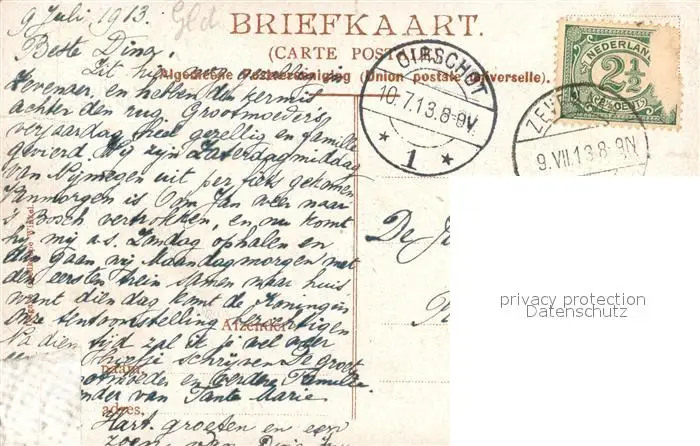 9 Juli 1913.
Gld.
BRIEFKAART.
(CARTE POSTALE)
Algemeene Postvereeniging (Union postale universelle).
NEDERLAND
2½
CENT
OIRSCHOT
10.7.13.8-9V.
1
ZEVEN
9.VII.13 8-9N
Beste Dina,
Zit hier erg gezellig in
Zevenaar, en hebben de kermis
achter den rug Grootmoeders
verjaardag heel gezellig en famille
gevierd. Wij zijn Zaterdagmiddag
van Nijmegen uit per fiets gekomen
Vanmorgen is Oom Jan weer naar
's Bosch vertrokken, en nu komt
hij mij a.s. Zondag ophalen en
dan gaan wij Maandagmorgen met
den eersten trein samen naar huis
want dien dag komt de Koningin
onze tentoonstelling bezichtigen
Na dien tijd zal ik je wel weer
een briefje schrijven De groeten
Grootmoeder en verdere Familie
van Tante Marie
Hart. groeten en een
zoen van
De
Afzender
naam,
adres,
privacy protection
Datenschutz